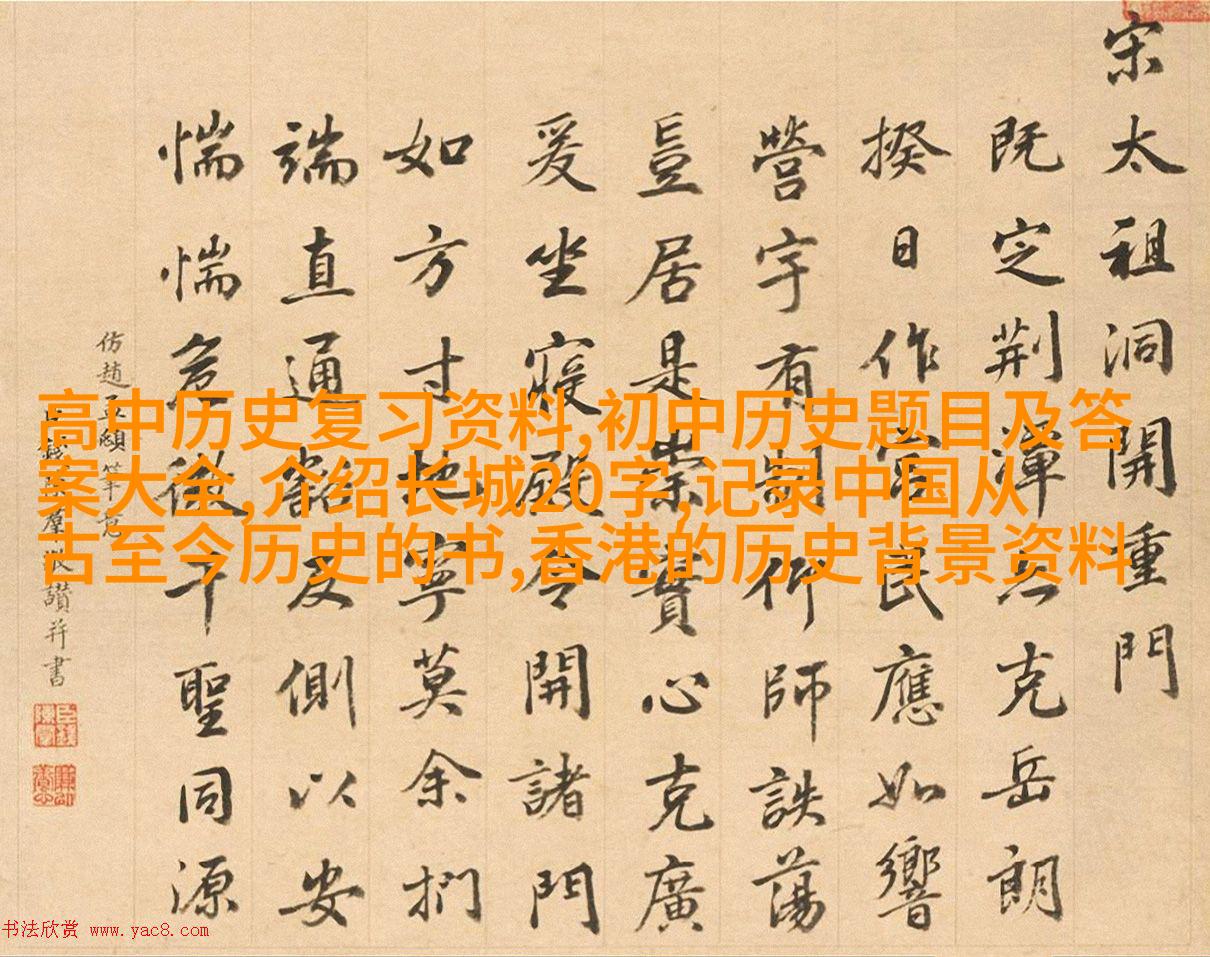 宋太祖洞開重門
既定荆渾克岳朗
揆日作宮民應如響
營宇有制仰師詄蕩
豈居是崇貴心克廣
爰坐寢殿令開諸門
如方寸地寧莫余捫
端直通豁及側以安
惴惴危微千聖同源
仿趙孟頫筆意
臣錢陳羣敬讚并書
高中历史复习资料,初中历史题目及答
案大全,介绍长城20字,记录中国从
古至今历史的书,香港的历史背景资料
书法欣赏 www.yac8.com